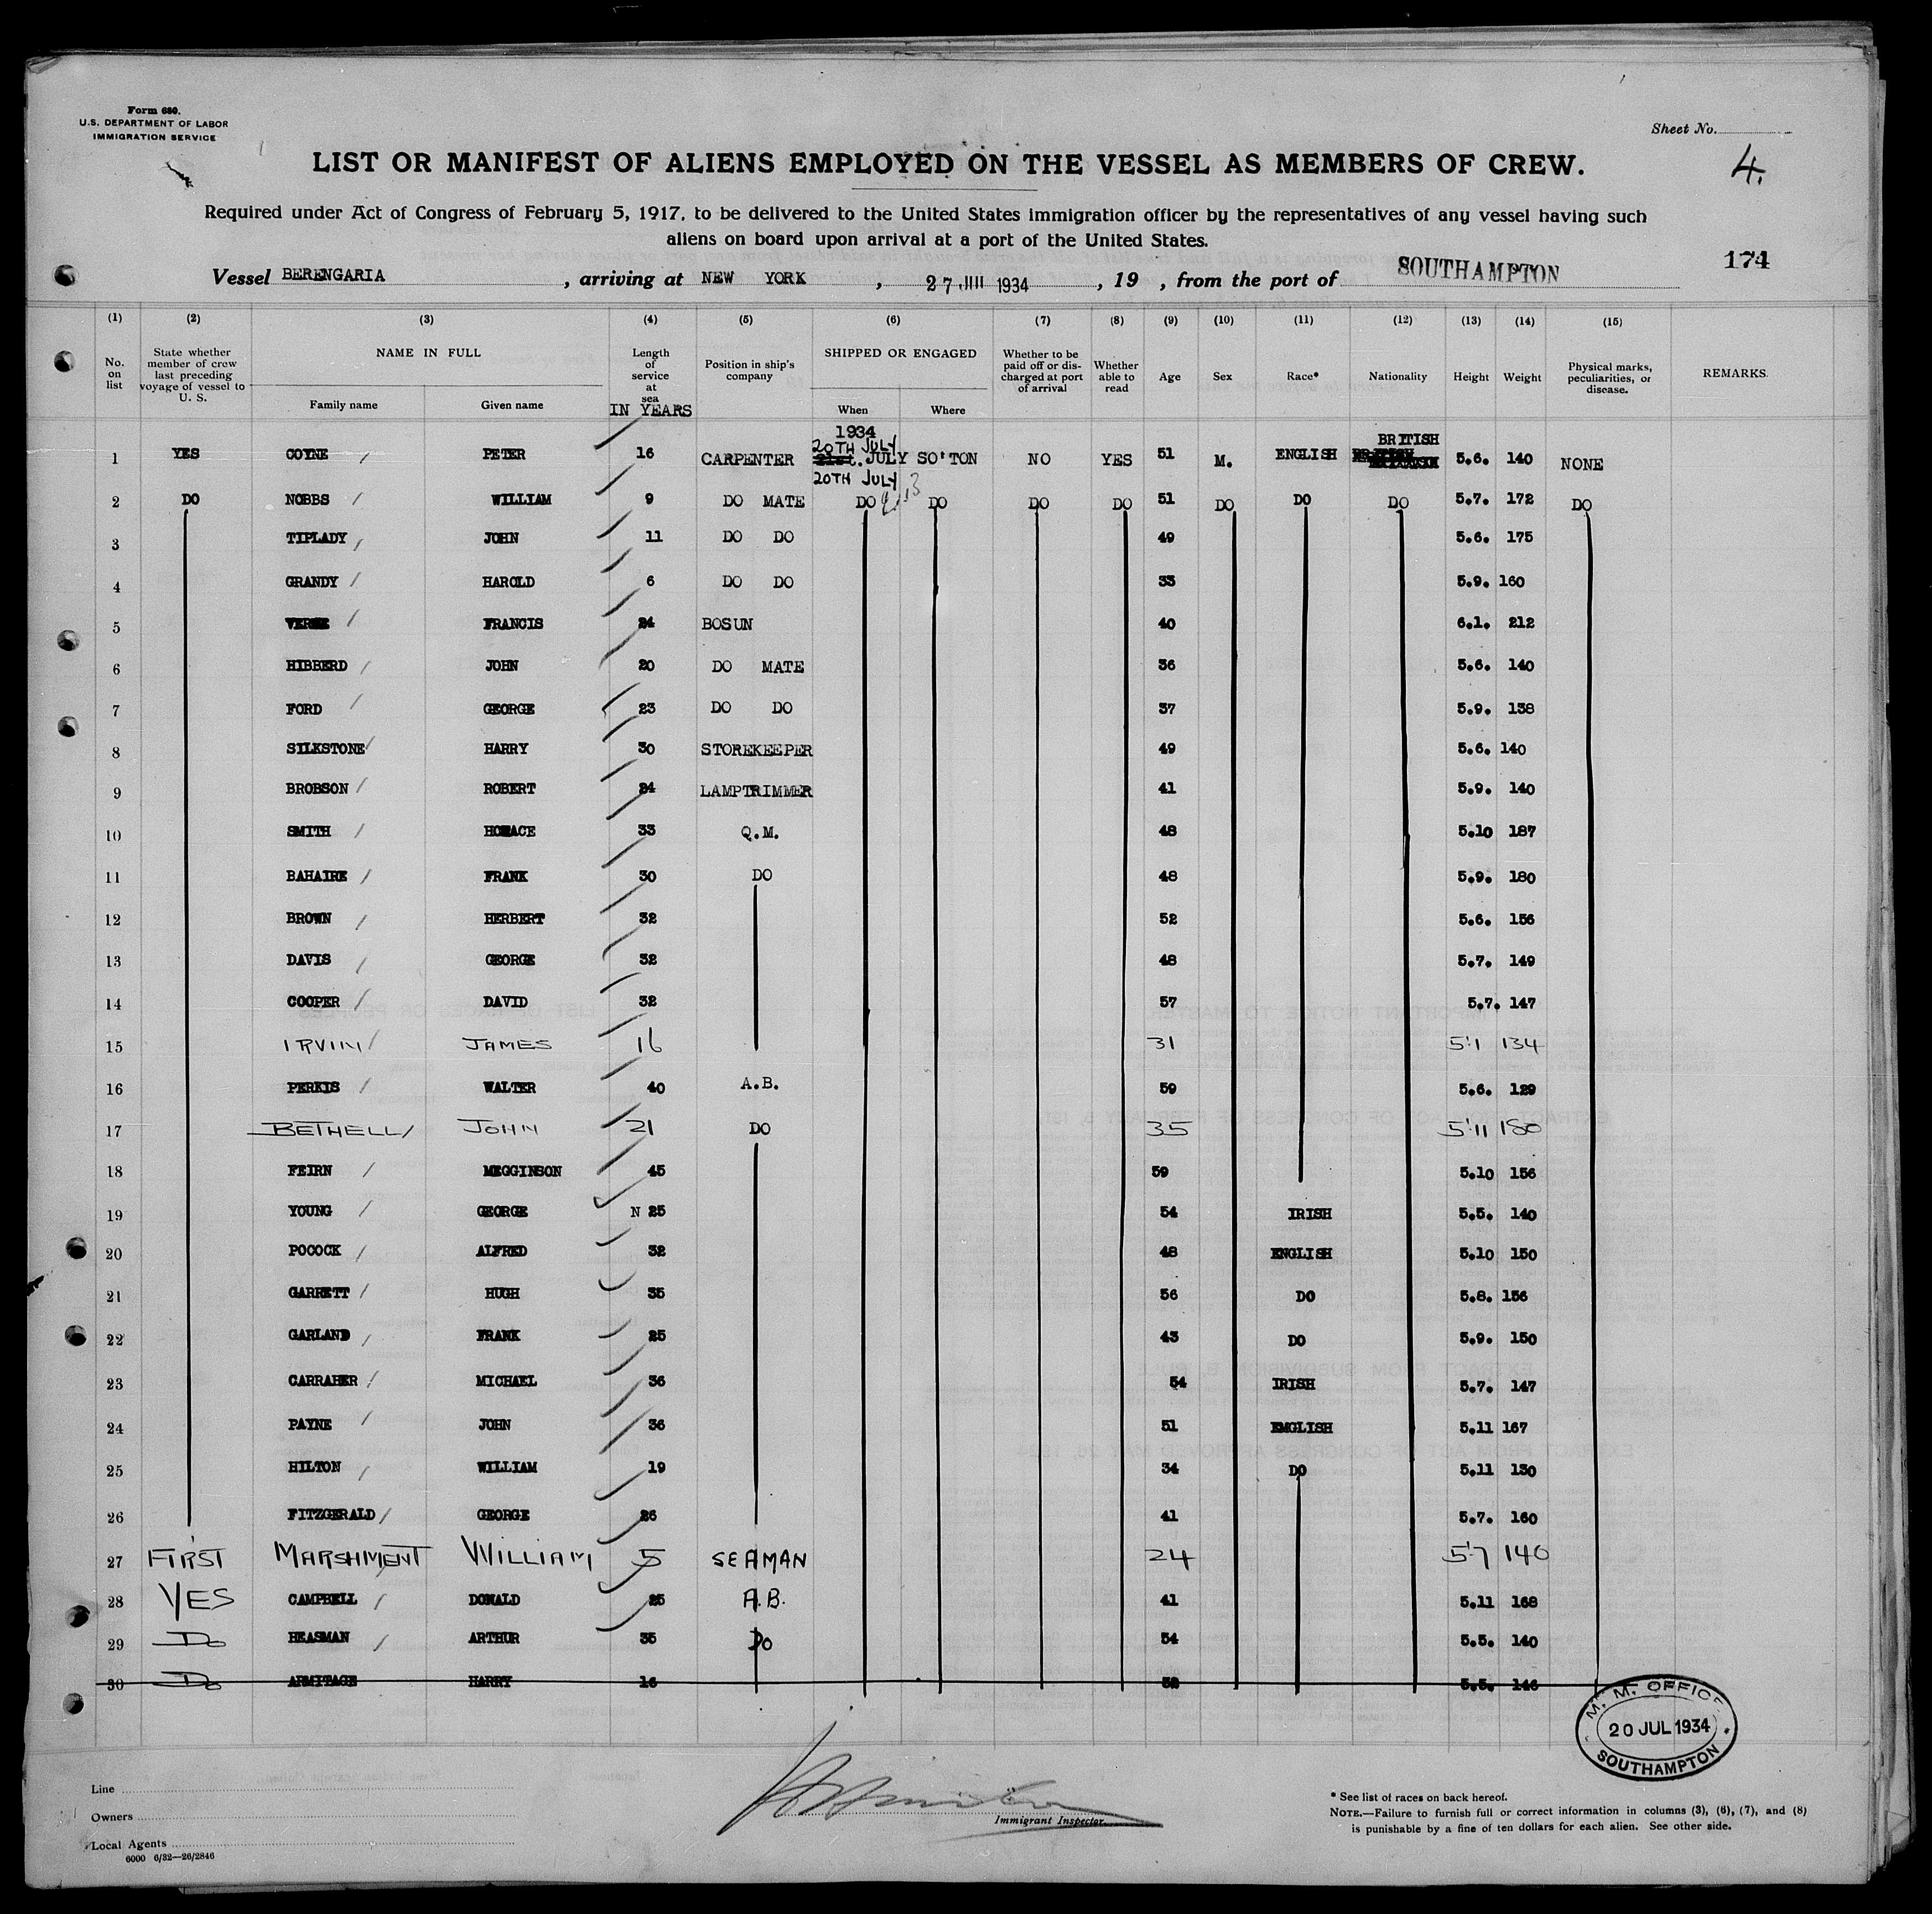 Form 680.
U.S. DEPARTMENT OF LABOR
IMMIGRATION SERVICE
Sheet No.
4.
LIST OR MANIFEST OF ALIENS EMPLOYED ON THE VESSEL AS MEMBERS OF CREW.
Required under Act of Congress of February 5, 1917, to be delivered to the United States immigration officer by the representatives of any vessel having such
aliens on board upon arrival at a port of the United States.
174
Vessel BERENGARIA , arriving at NEW YORK , 27 JUL 1934 , 19 , from the port of SOUTHAMPTON
(1) (2) (3) (4) (5) (6) (7) (8) (9) (10) (11) (12) (13) (14) (15)
No. on list State whether member of crew last preceding voyage of vessel to U. S. NAME IN FULL Family name Given name Length of service at sea IN YEARS Position in ship's company SHIPPED OR ENGAGED When Where Whether to be paid off or discharged at port of arrival Whether able to read Age Sex Race* Nationality Height Weight Physical marks, peculiarities, or disease. REMARKS.
1934
20TH JULY BRITISH
1 YES COYNE PETER 16 CARPENTER 21st. JULY SO'TON NO YES 51 M. ENGLISH 5.6. 140 NONE
20TH JULY
2 DO NOBBS WILLIAM 9 DO MATE DO DO DO DO 51 DO DO DO 5.7. 172 DO
3 TIPLADY JOHN 11 DO DO 49 5.6. 175
4 GRANDY HAROLD 6 DO DO 33 5.9. 160
5 FRANCIS 24 BOSUN 40 6.1. 212
6 HIBBERD JOHN 20 DO MATE 36 5.6. 140
7 FORD GEORGE 23 DO DO 37 5.9. 138
8 SILKSTONE HARRY 30 STOREKEEPER 49 5.6. 140
9 BROBSON ROBERT 24 LAMPTRIMMER 41 5.9. 140
10 SMITH HORACE 33 Q.M. 48 5.10 187
11 BAHAIRE FRANK 30 DO 48 5.9. 180
12 BROWN HERBERT 32 52 5.6. 156
13 DAVIS GEORGE 32 48 5.7. 149
14 COOPER DAVID 32 57 5.7. 147
15 IRVIN JAMES 16 31 5'1 134
16 PERKIS WALTER 40 A.B. 59 5.6. 129
17 BETHELL JOHN 21 DO 35 5'11 180
18 FEIRN MEGGINSON 45 59 5.10 156
19 YOUNG GEORGE N 25 54 IRISH 5.5. 140
20 POCOCK ALFRED 32 48 ENGLISH 5.10 150
21 GARRETT HUGH 35 56 DO 5.8. 156
22 GARLAND FRANK 25 43 DO 5.9. 150
23 CARRAHER MICHAEL 36 54 IRISH 5.7. 147
24 PAYNE JOHN 36 51 ENGLISH 5.11 167
25 HILTON WILLIAM 19 34 DO 5.11 130
26 FITZGERALD GEORGE 26 41 5.7. 160
27 FIRST MARSHMENT WILLIAM 5 SEAMAN 24 5'7 140
28 YES CAMPBELL DONALD 25 A.B. 41 5.11 168
29 Do HEASMAN ARTHUR 35 Do 54 5.5. 140
30 Do ARMITAGE HARRY 16 52 5.5. 146
M. M. OFFICE
20 JUL 1934
SOUTHAMPTON
Line
Owners
Local Agents
6000 6/32—26/2846
Immigrant Inspector.
* See list of races on back hereof.
NOTE.—Failure to furnish full or correct information in columns (3), (6), (7), and (8)
is punishable by a fine of ten dollars for each alien. See other side.